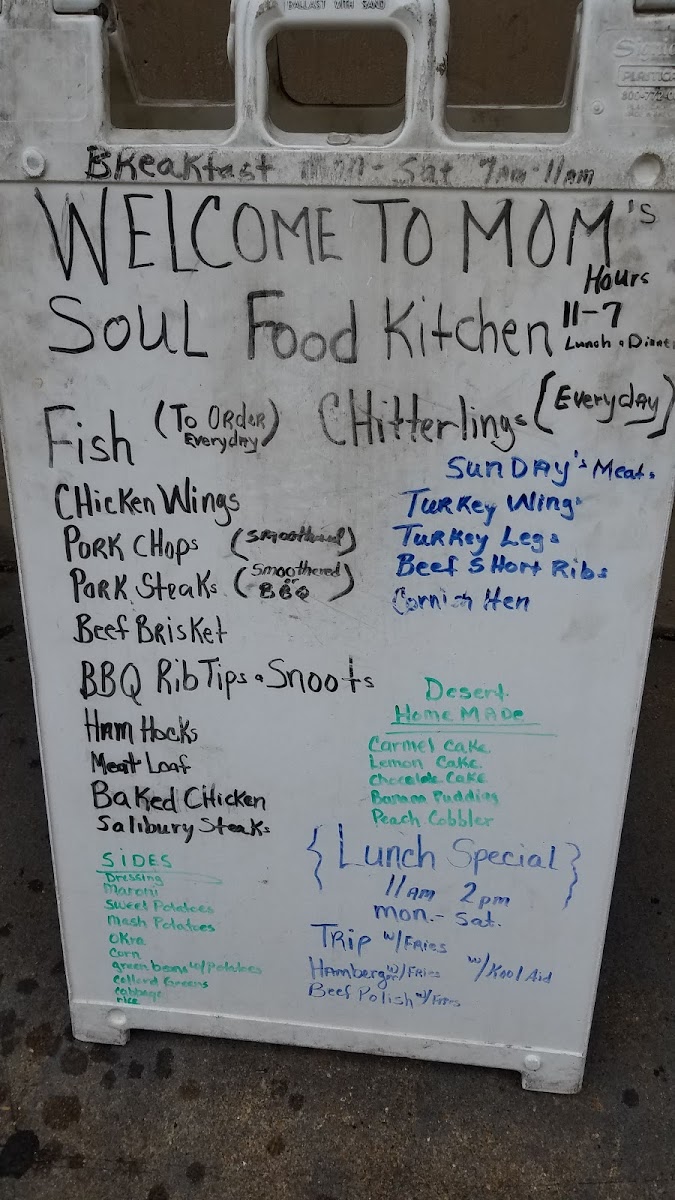 BALLAST WITH SAND
PLASTICA
BReakfast mon - Sat 7am-11am
WELCOME TO MOM's
Soul Food Kitchen
Hours
11-7
Lunch & Dinne
Fish (To Order Everyday)
CHitterlings (Everyday)
CHicken Wings
Pork CHops (Smoothered)
Pork Steaks (Smoothered or BBQ)
Beef Brisket
BBQ Rib Tips & Snoots
Ham Hocks
Meat Loaf
Baked CHicken
Salibury Steaks
SunDAy's Meats
Turkey Wings
Turkey Legs
Beef SHort Ribs
Cornish Hen
Desert
Home MADe
Carmel Cake
Lemon Cake
Chocolate Cake
Banana Pudding
Peach Cobbler
SIDES
Dressing
Maroni
Sweet Potatoes
Mash Potatoes
Okra
Corn
green beans w/Potatoes
Collard Greens
Cabbage
rice
{Lunch Special}
11am 2pm
mon.- Sat.
Trip w/Fries
Hamberger w/Fries
w/Kool Aid
Beef Polish w/Fries